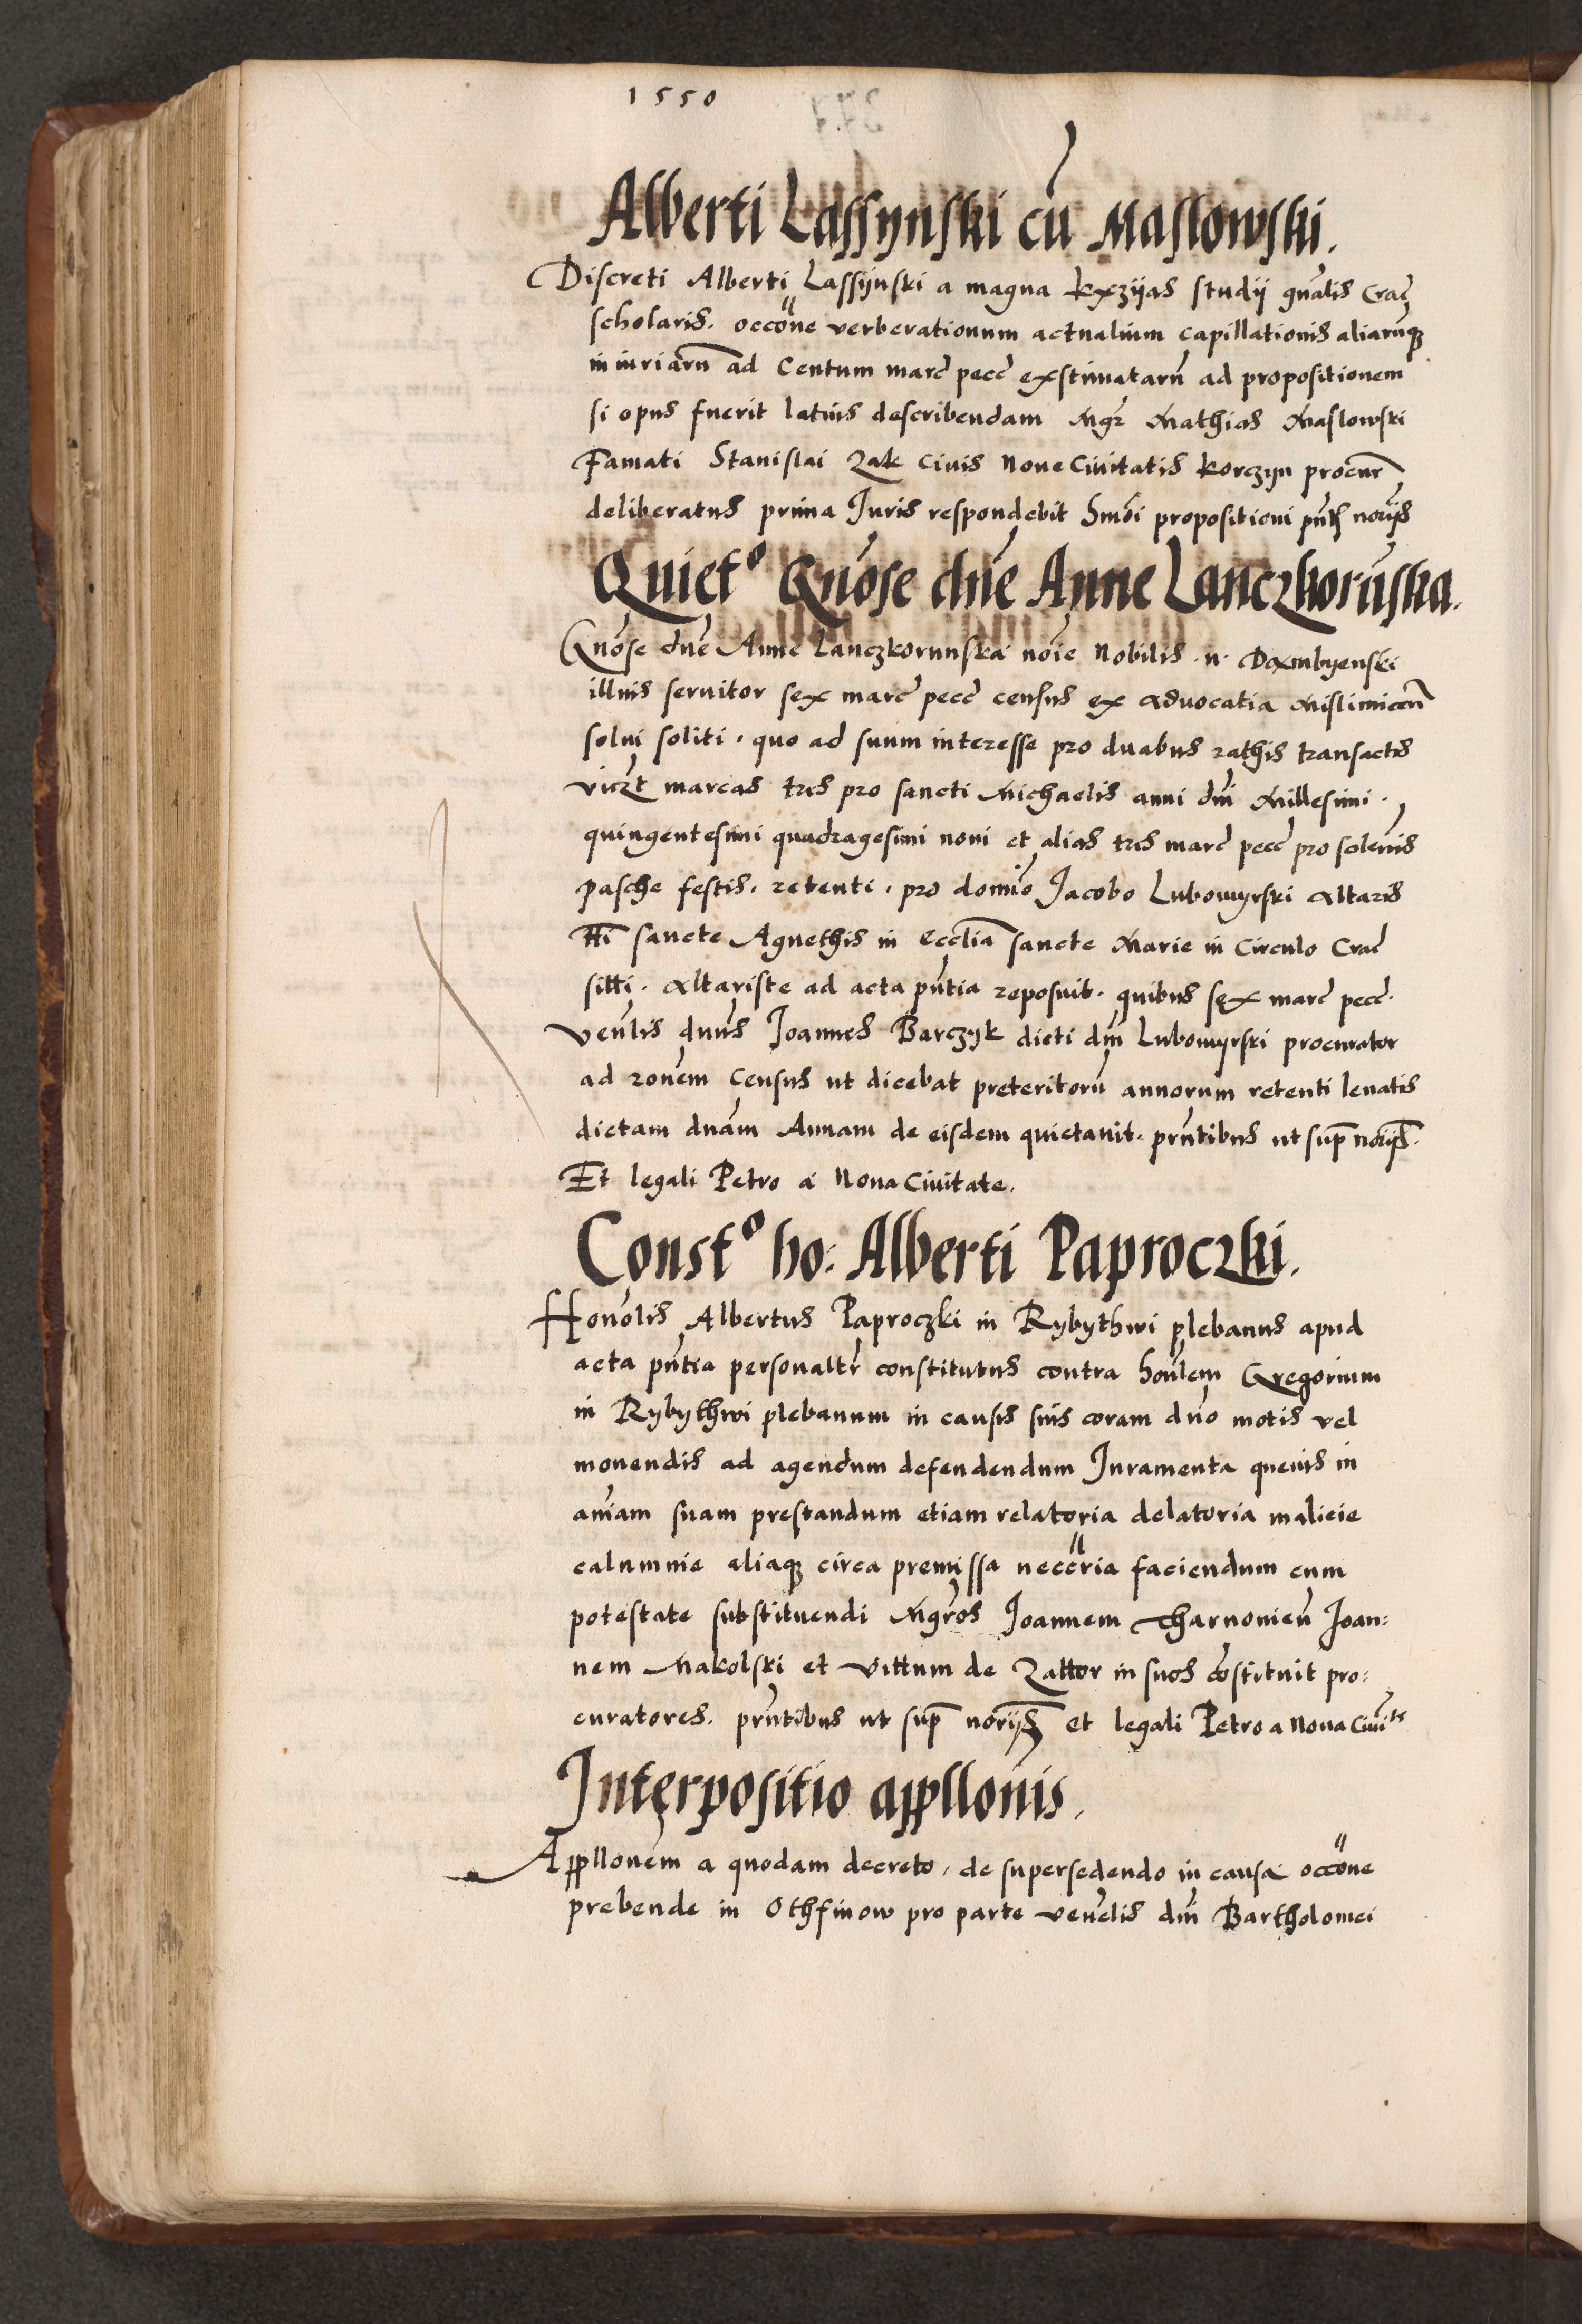 1550
Alberti Lassynski cū Maslowski.
Discreti Alberti Lassÿnski a magna kxzÿas studÿ gn̄alis Crac̄
scholaris. occōne verberationum actualium capillationis aliarūq3
iniuriarū ad Centum marc̄ pecc̄ exstimatarū ad propositionem
si opus fuerit latius describendam Mgr̄ Mathias Maslowski
Famati Stanislai Zak Ciuis Noue Ciuitatis korczyn procur̄
deliberatus prima Iuris respondebit hm̄oi propositioni pn̄tib norÿs
Quiet⁰ Gn̄ose dn̄e Anne Lanczkorūska.
Gn̄ose dn̄e Anne Lanczkorunska noīe Nobilis .n. Dxmbyenski
illius seruitor sex marc̄ pecc̄ census ex aduocatia Mislimicen̄
solui soliti. quo ad suum interesse pro duabus rathis transactis
vicz̄t marcas tres pro sancti Michaelis anni dn̄i Millesimi.
quingentesimi quadragesimi noni et alias tres marc̄ pecc̄ pro solen̄is
pasche festis. retenti. pro domīo Jacobo Lubomyrski altaris
tt̄i sancte Agnethis in Eccl̄ia sancte Marie in Circulo Crac̄
sitti. Altariste ad acta pn̄tia reposuit. quibus sex marc̄ pecc̄.
Ven̄lis dn̄us Joannes Barczyk dicti dn̄i Lubomyrski procurator
ad rōnem Census ut dicebat preteritorū annorum retenti leuatis
dictam dn̄am Annam de eisdem quietauit. prn̄tibus ut sup̄ norÿs.
Et legali Petro a Noua Ciuitate.
Const⁰ ho: Alberti Paproczki.
Honōlis Albertus Paproczki in Rybythwi plebanus apud
acta pn̄tia personaltr̄ constitutus contra hon̄lem Gregorium
in Rybythwi plebanum in causis suis coram dn̄o motis vel
mouendis ad agendum defendendum Iuramenta queuis in
aīam suam prestandum etiam relatoria delatoria malicie
calumnie aliaq3 circa premissa neccr̄ia faciendum cum
potestate substituendi Mgr̄os Joannem Tharnouien̄ Joan:
nem Makolski et Vittum de Zattor in suos cōstituit pro:
curatores. prn̄tibus ut sup̄ norÿs et legali Petro a Noua Ciuīts
Interpositio appllōnis.
Appllōnem a quodam decreto, de supersedendo in causa occōne
prebende in Othfinow pro parte ven̄elis dn̄i Bartholomei